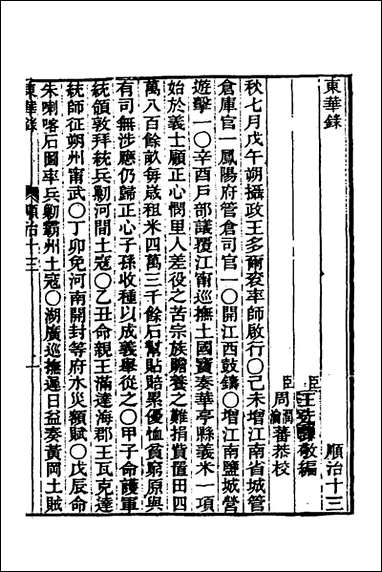 東華錄 順治十三
臣王先謙敬編
臣周潤瀹蕃恭校
秋七月戊午朔攝政王多爾袞率師啟行〇己未增江南省城管
倉庫官一鳳陽府管倉司官一〇開江西鼓鑄〇增江南鹽城營
遊擊一〇辛酉戶部議覆江甯巡撫土國寶奏華亭縣義米一項
始於義士顧正心憫里人差役之苦宗族贍養之難捐貲置田四
萬八百餘畝每歲租米四萬三千餘石幫貼賠累優恤貧窮原與
有司無涉應仍歸正心子孫收種以成義舉從之〇甲子命護軍
統領敦拜統兵勦河間土寇〇乙丑命親王滿達海郡王瓦克達
統師征朔州甯武〇丁卯免河南開封等府水災額賦〇戊辰命
朱喇喀石圖率兵勦霸州土寇〇湖廣巡撫遲日益奏黃岡土賊
東華錄 順治十三 一